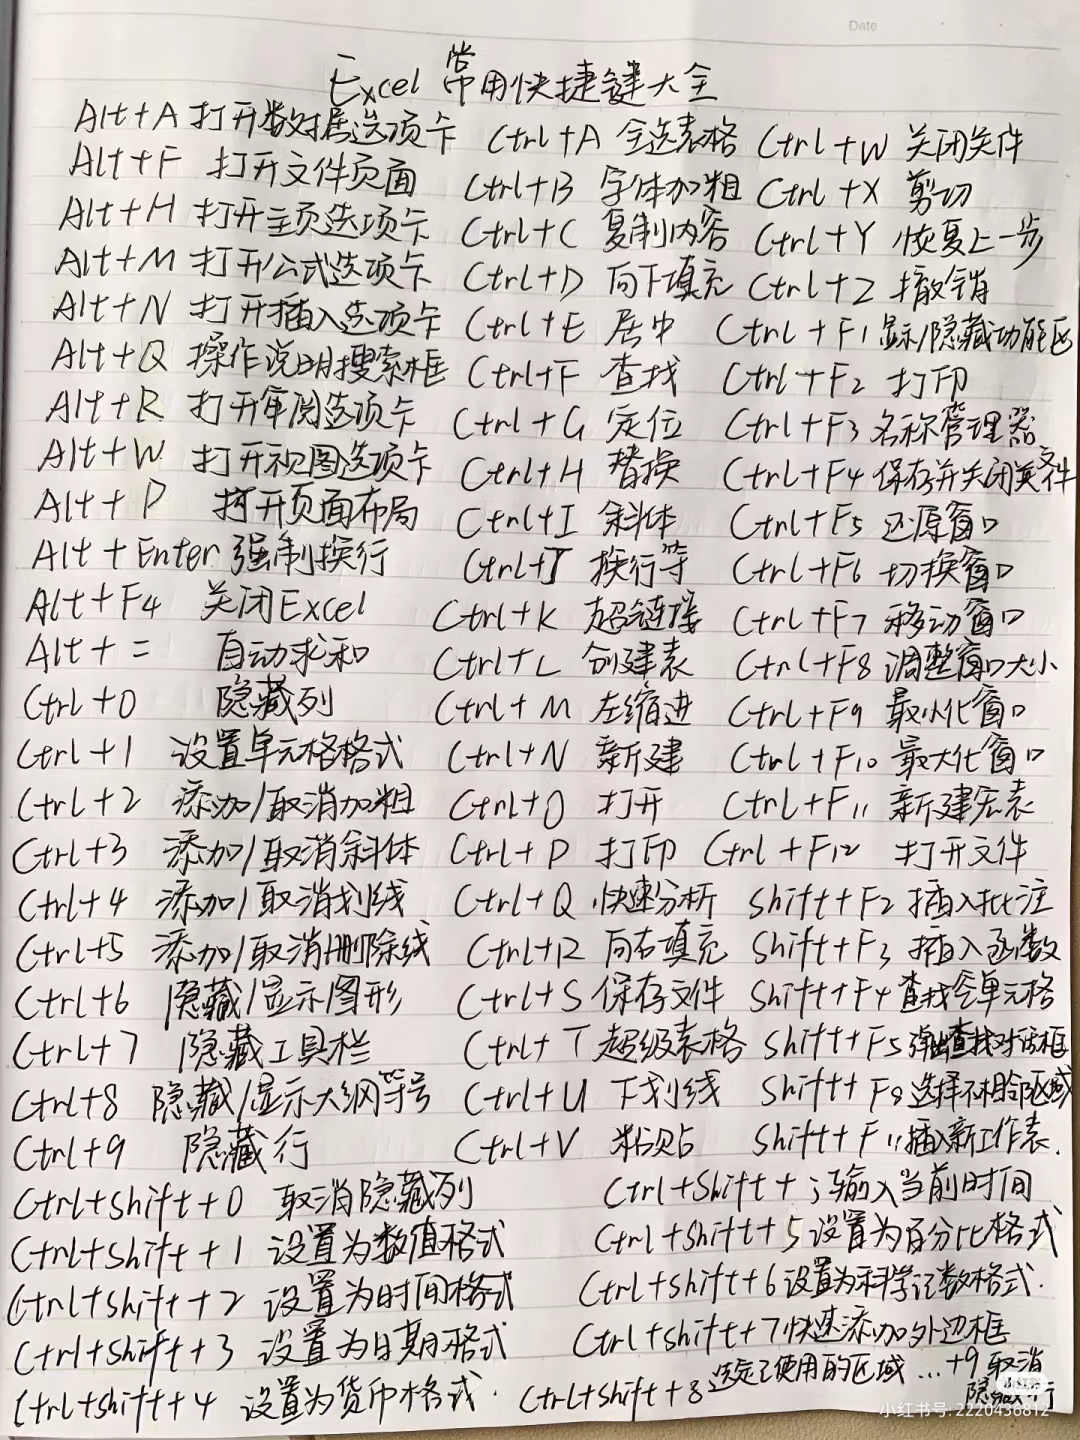 Date
Excel 常用快捷键大全
Alt+A 打开数据选项卡
Alt+F 打开文件页面
Alt+H 打开主页选项卡
Alt+M 打开公式选项卡
Alt+N 打开插入选项卡
Alt+Q 操作说明搜索框
Alt+R 打开审阅选项卡
Alt+W 打开视图选项卡
Alt+P 打开页面布局
Alt+Enter 强制换行
Alt+F4 关闭Excel
Alt+= 自动求和
Ctrl+0 隐藏列
Ctrl+1 设置单元格格式
Ctrl+2 添加/取消加粗
Ctrl+3 添加/取消斜体
Ctrl+4 添加/取消划线
Ctrl+5 添加/取消删除线
Ctrl+6 隐藏/显示图形
Ctrl+7 隐藏工具栏
Ctrl+8 隐藏/显示大纲符号
Ctrl+9 隐藏行
Ctrl+A 全选表格
Ctrl+B 字体加粗
Ctrl+C 复制内容
Ctrl+D 向下填充
Ctrl+E 居中
Ctrl+F 查找
Ctrl+G 定位
Ctrl+H 替换
Ctrl+I 斜体
Ctrl+J 换行等
Ctrl+K 超链接
Ctrl+L 创建表
Ctrl+M 左缩进
Ctrl+N 新建
Ctrl+O 打开
Ctrl+P 打印
Ctrl+Q 快速分析
Ctrl+R 向右填充
Ctrl+S 保存文件
Ctrl+T 超级表格
Ctrl+U 下划线
Ctrl+V 粘贴
Ctrl+W 关闭文件
Ctrl+X 剪切
Ctrl+Y 恢复上一步
Ctrl+Z 撤销
Ctrl+F1 显示/隐藏功能区
Ctrl+F2 打印
Ctrl+F3 名称管理器
Ctrl+F4 保存并关闭文件
Ctrl+F5 还原窗口
Ctrl+F6 切换窗口
Ctrl+F7 移动窗口
Ctrl+F8 调整窗口大小
Ctrl+F9 最小化窗口
Ctrl+F10 最大化窗口
Ctrl+F11 新建宏表
Ctrl+F12 打开文件
Shift+F2 插入批注
Shift+F3 插入函数
Shift+F4 查找空单元格
Shift+F5 弹出查找对话框
Shift+F8 选择不相邻区域
Shift+F11 插入新工作表.
Ctrl+Shift+0 取消隐藏列
Ctrl+Shift+1 设置为数值格式
Ctrl+Shift+2 设置为时间格式
Ctrl+Shift+3 设置为日期格式
Ctrl+Shift+4 设置为货币格式.
Ctrl+Shift+; 输入当前时间
Ctrl+Shift+5 设置为百分比格式
Ctrl+Shift+6 设置为科学记数格式.
Ctrl+Shift+7 快速添加外边框
Ctrl+Shift+8 选定已使用的区域 ...+9 取消隐藏行
小红书
小红书号: 2220436812